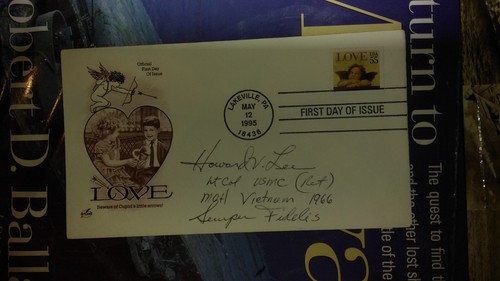 Official
First Day
Of Issue
LOVE
USA
55
LAKEVILLE, PA
MAY
12
1995
18438
FIRST DAY OF ISSUE
LOVE
Howard V. Lee
LtCol USMC (Ret)
MOH Vietnam 1966
Semper Fidelis
obert D. Ball
turn to
The quest to find t
and the other lost s
de of the